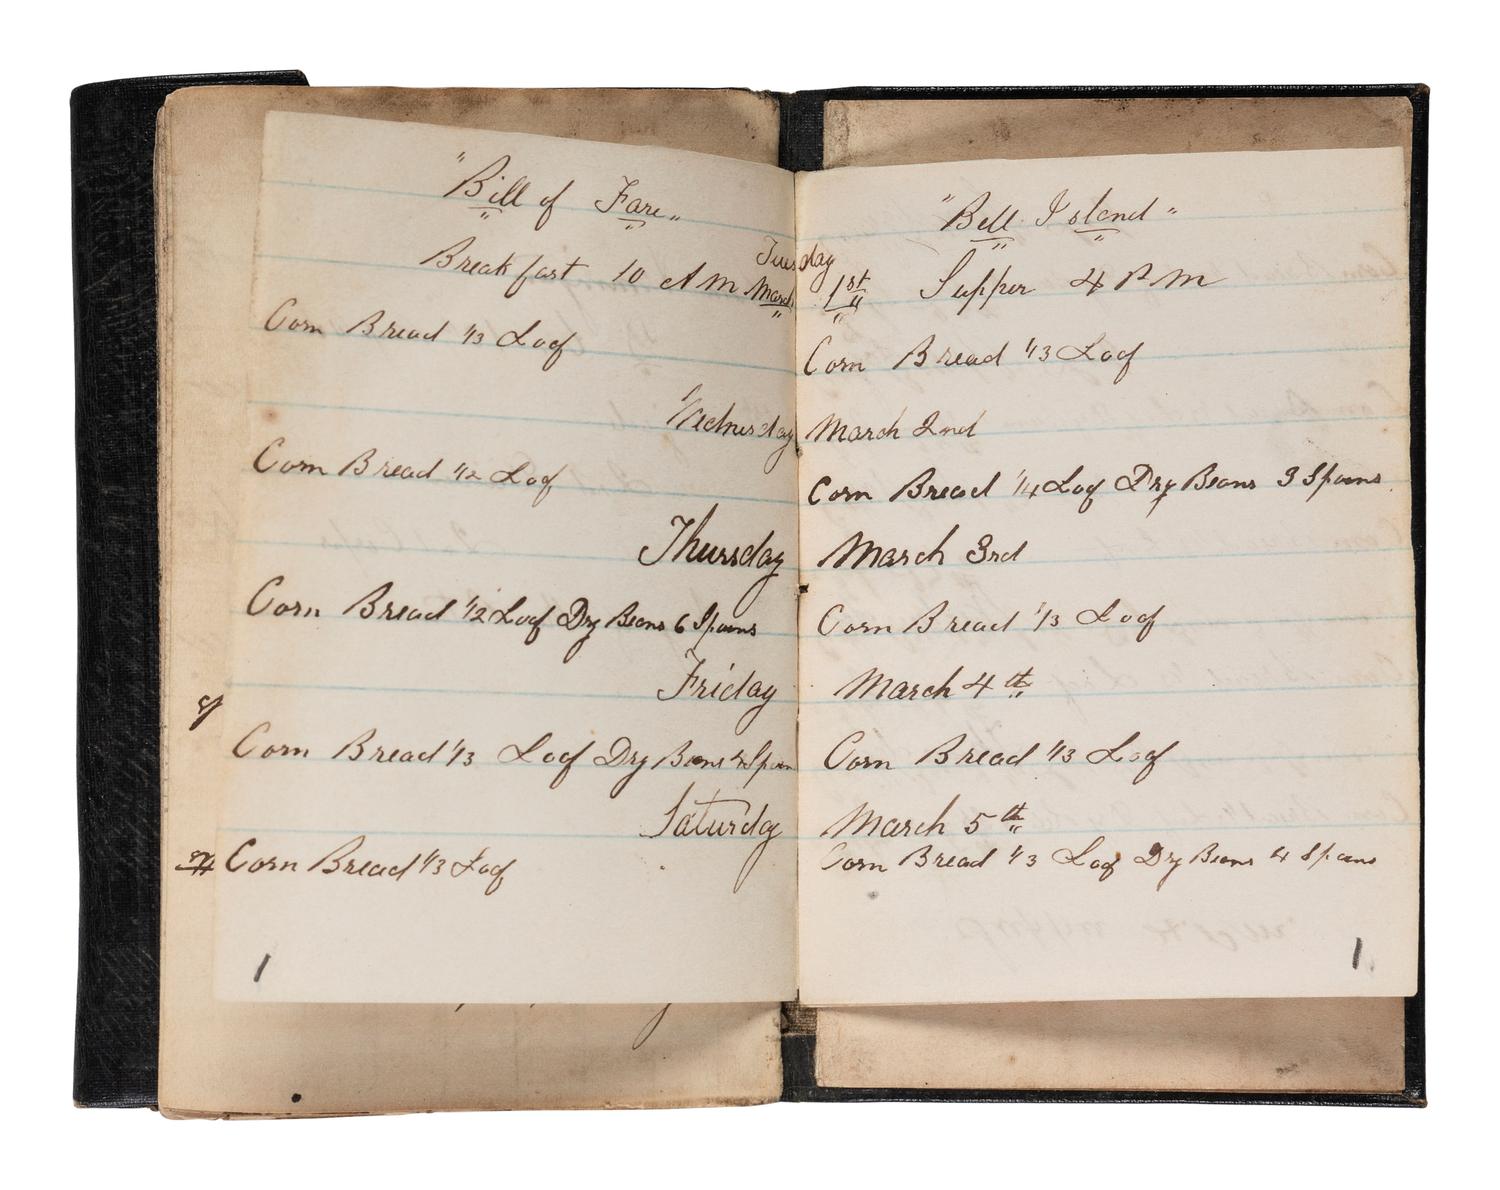 "Bill of Fare"
Breakfast 10 A M
Corn Bread 1/3 Loaf
Wednesday
Corn Bread 1/2 Loaf
Thursday
Corn Bread 1/2 Loaf Dry Beans 6 Spoons
Friday
Corn Bread 1/3 Loaf Dry Beans Spoon
Saturday
Corn Bread 1/3 Loaf
1
"Bell Island"
Tuesday
March 1st Supper 4 P M
Corn Bread 1/3 Loaf
March 2nd
Corn Bread 1/4 Loaf Dry Beans 3 Spoons
March 3rd
Corn Bread 1/3 Loaf
March 4th
Corn Bread 1/3 Loaf
March 5th
Corn Bread 1/3 Loaf Dry Beans 4 Spoons
1